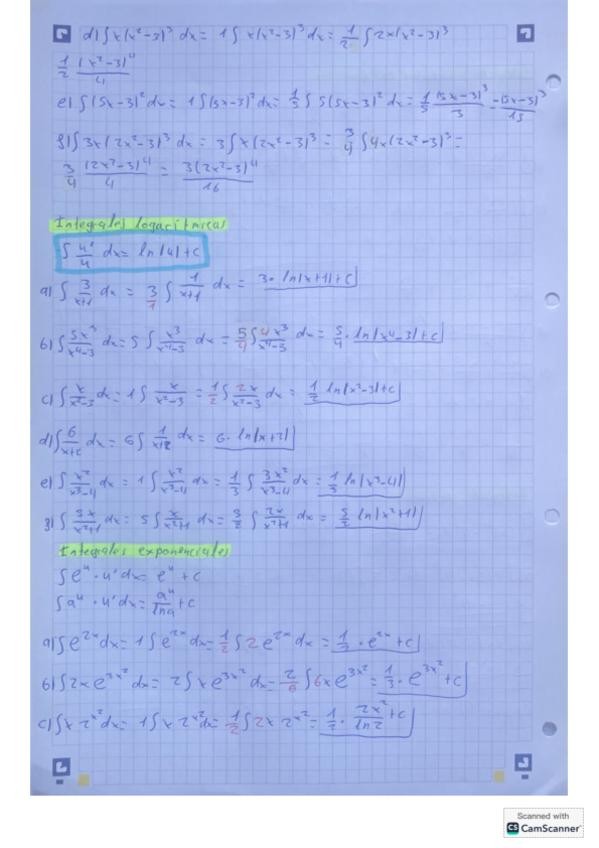 d) ∫x(x²-3)³ dx = 1∫x(x²-3)³ dx = 1/2 ∫2x(x²-3)³
1/2 (x²-3)⁴/4
e) ∫(5x-3)² dx = 1∫(5x-3)² dx = 1/5 ∫5(5x-3)² dx = 1/5 (5x-3)³/3 = (5x-3)³/15
g) ∫3x(2x²-3)³ dx = 3∫x(2x²-3)³ = 3/4 ∫4x(2x²-3)³ =
3/4 (2x²-3)⁴/4 = 3(2x²-3)⁴/16
Integrales logarítmicas
∫u'/u dx = ln|u|+c
a) ∫3/(x+1) dx = 3/1 ∫1/(x+1) dx = 3·ln|x+1|+c
b) ∫5x³/(x⁴-3) dx = 5∫x³/(x⁴-3) dx = 5/4 ∫4x³/(x⁴-3) dx = 5/4·ln|x⁴-3|+c
c) ∫x/(x²-3) dx = 1∫x/(x²-3) = 1/2 ∫2x/(x²-3) dx = 1/2 ln|x²-3|+c
d) ∫6/(x+2) dx = 6∫1/(x+2) dx = 6·ln|x+2|
e) ∫x²/(x³-4) dx = 1∫x²/(x³-4) dx = 1/3 ∫3x²/(x³-4) dx = 1/3 ln|x³-4|
g) ∫5x/(x²+1) dx = 5∫x/(x²+1) dx = 5/2 ∫2x/(x²+1) dx = 5/2 ln|x²+1|
Integrales exponenciales
∫eᵘ·u'dx = eᵘ+c
∫aᵘ·u'dx = aᵘ/lna +c
a) ∫e^2x dx = 1∫e^2x dx = 1/2 ∫2e^2x dx = 1/2·e^2x +c
b) ∫2xe^3x² dx = 2∫xe^3x² dx = 2/6 ∫6xe^3x² = 1/3·e^3x² +c
c) ∫x 2^x² dx = 1∫x 2^x² dx = 1/2 ∫2x 2^x² = 1/2·2^x²/ln2 +c
Scanned with
CS CamScanner